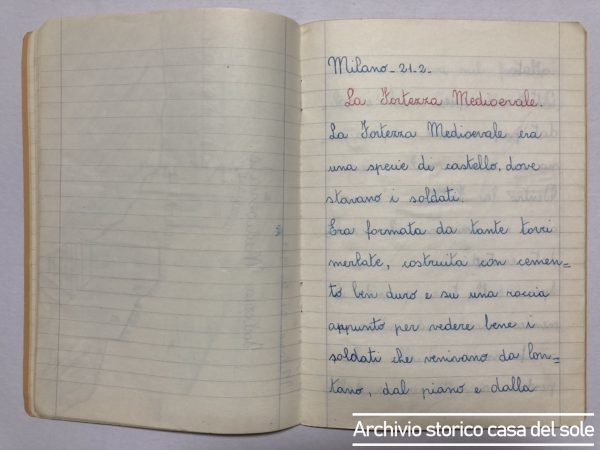 Milano - 21-2-
La Fortezza Medioevale.
La Fortezza Medioevale era
una specie di castello, dove
stavano i soldati.
Era formata da tante torri
merlate, costruita con cemen=
to ben duro e su una roccia
appunto per vedere bene i
soldati che venivano da lon=
tano, dal piano e dalla
Archivio storico casa del sole